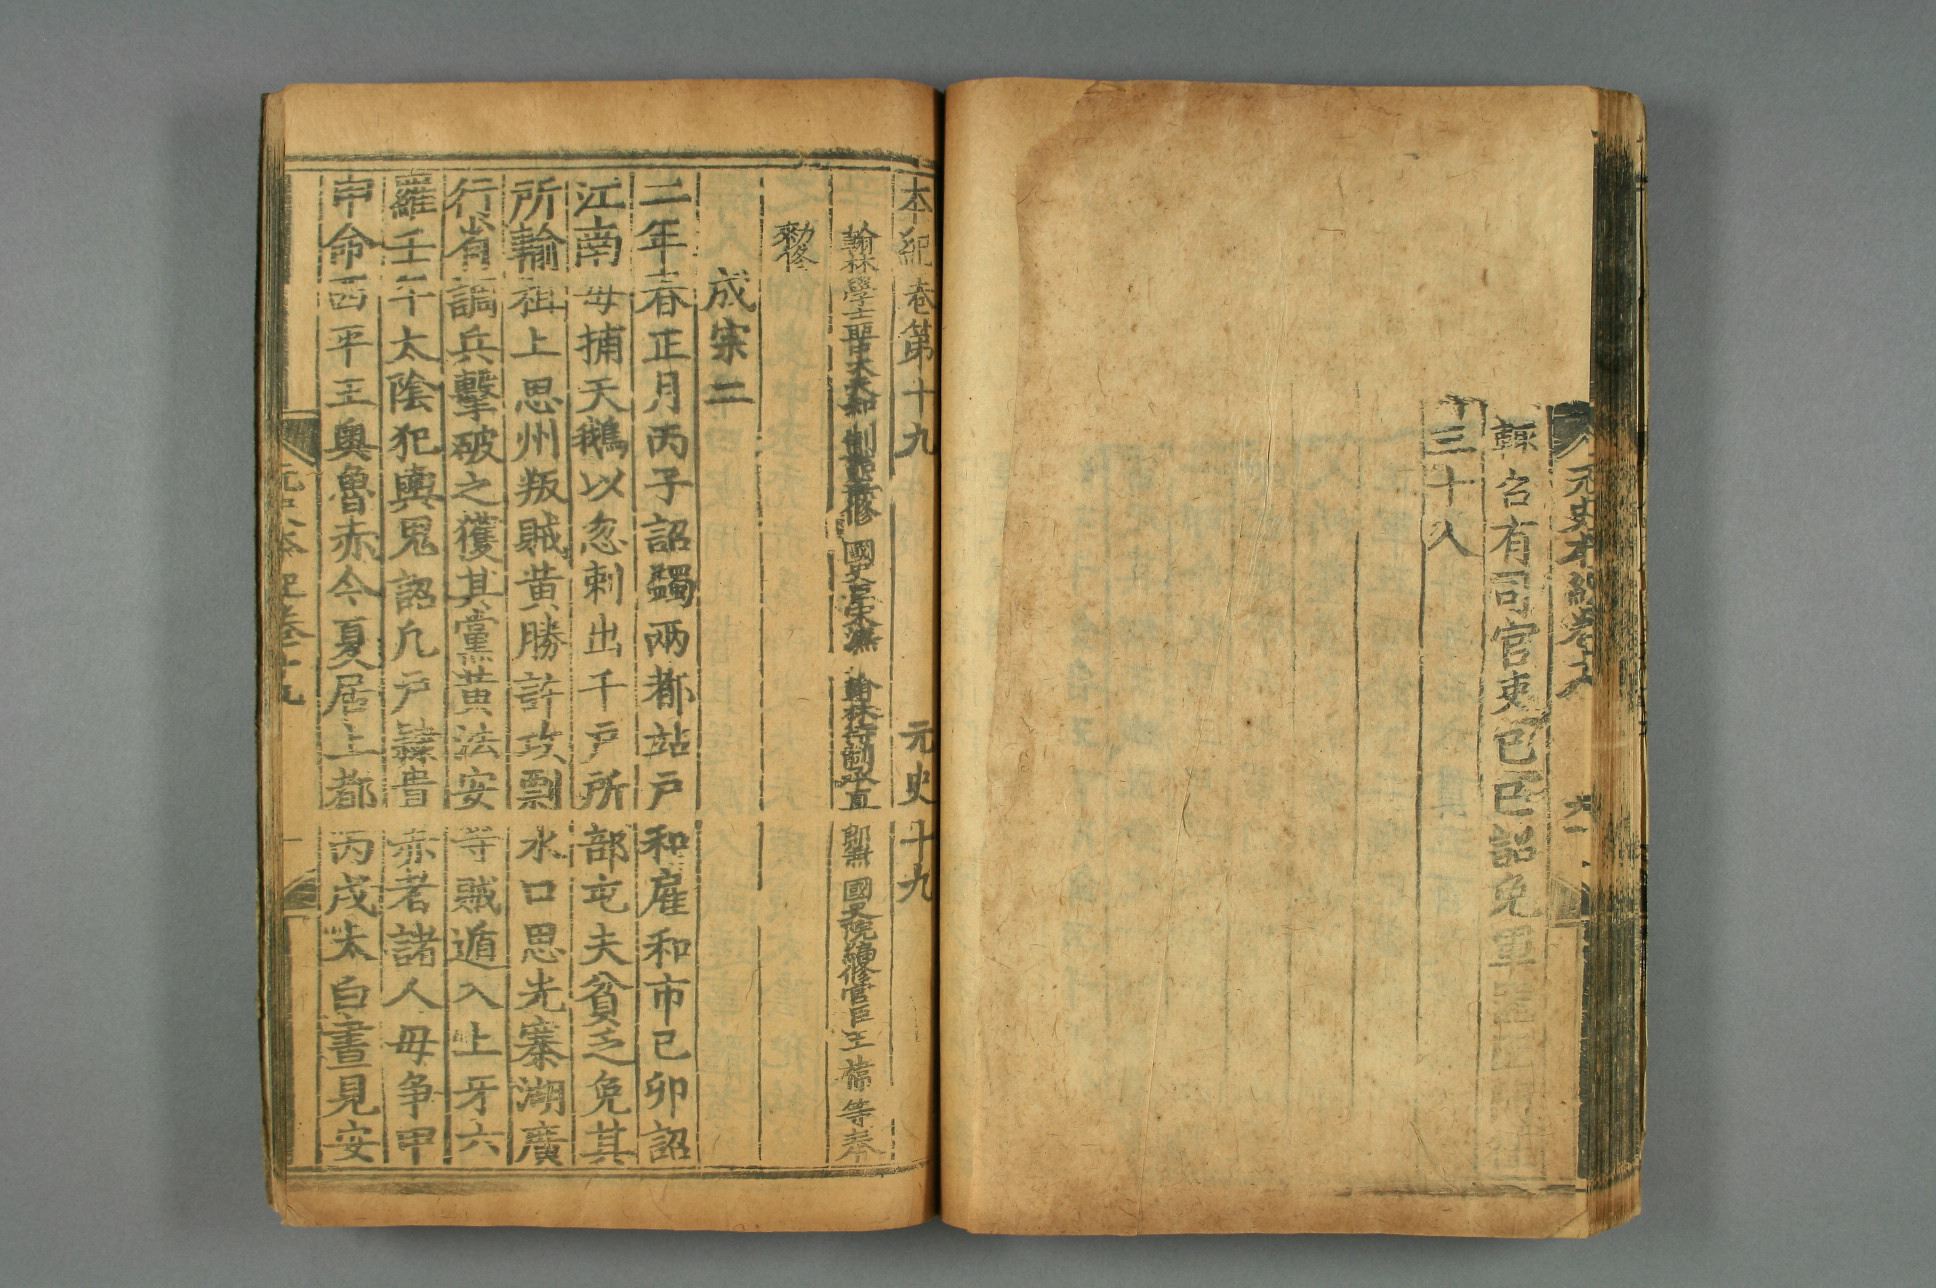 元史本紀卷十八
輒召有司官吏已巳詔免軍器匠門徭
三十八
本紀卷第十九 元史十九
翰林學士亞中大夫知制誥兼修國史臣宋濂 翰林待制承直郎兼國史院編修官臣王禕等奉
勑修
成宗二
二年春正月丙子詔蠲兩都站戶和雇和市己卯詔
江南毋捕天鵝以忽剌出千戶所部屯夫貧乏免其
所輸租上思州叛賊黃勝許攻剽水口思光寨湖廣
行省調兵擊破之獲其黨黃法安等賊遁入上牙六
羅壬午太陰犯輿鬼詔凡戶隸貴赤者諸人毋爭甲
申命西平王奥魯赤今夏居上都丙戌太白晝見安
元史本紀卷十九